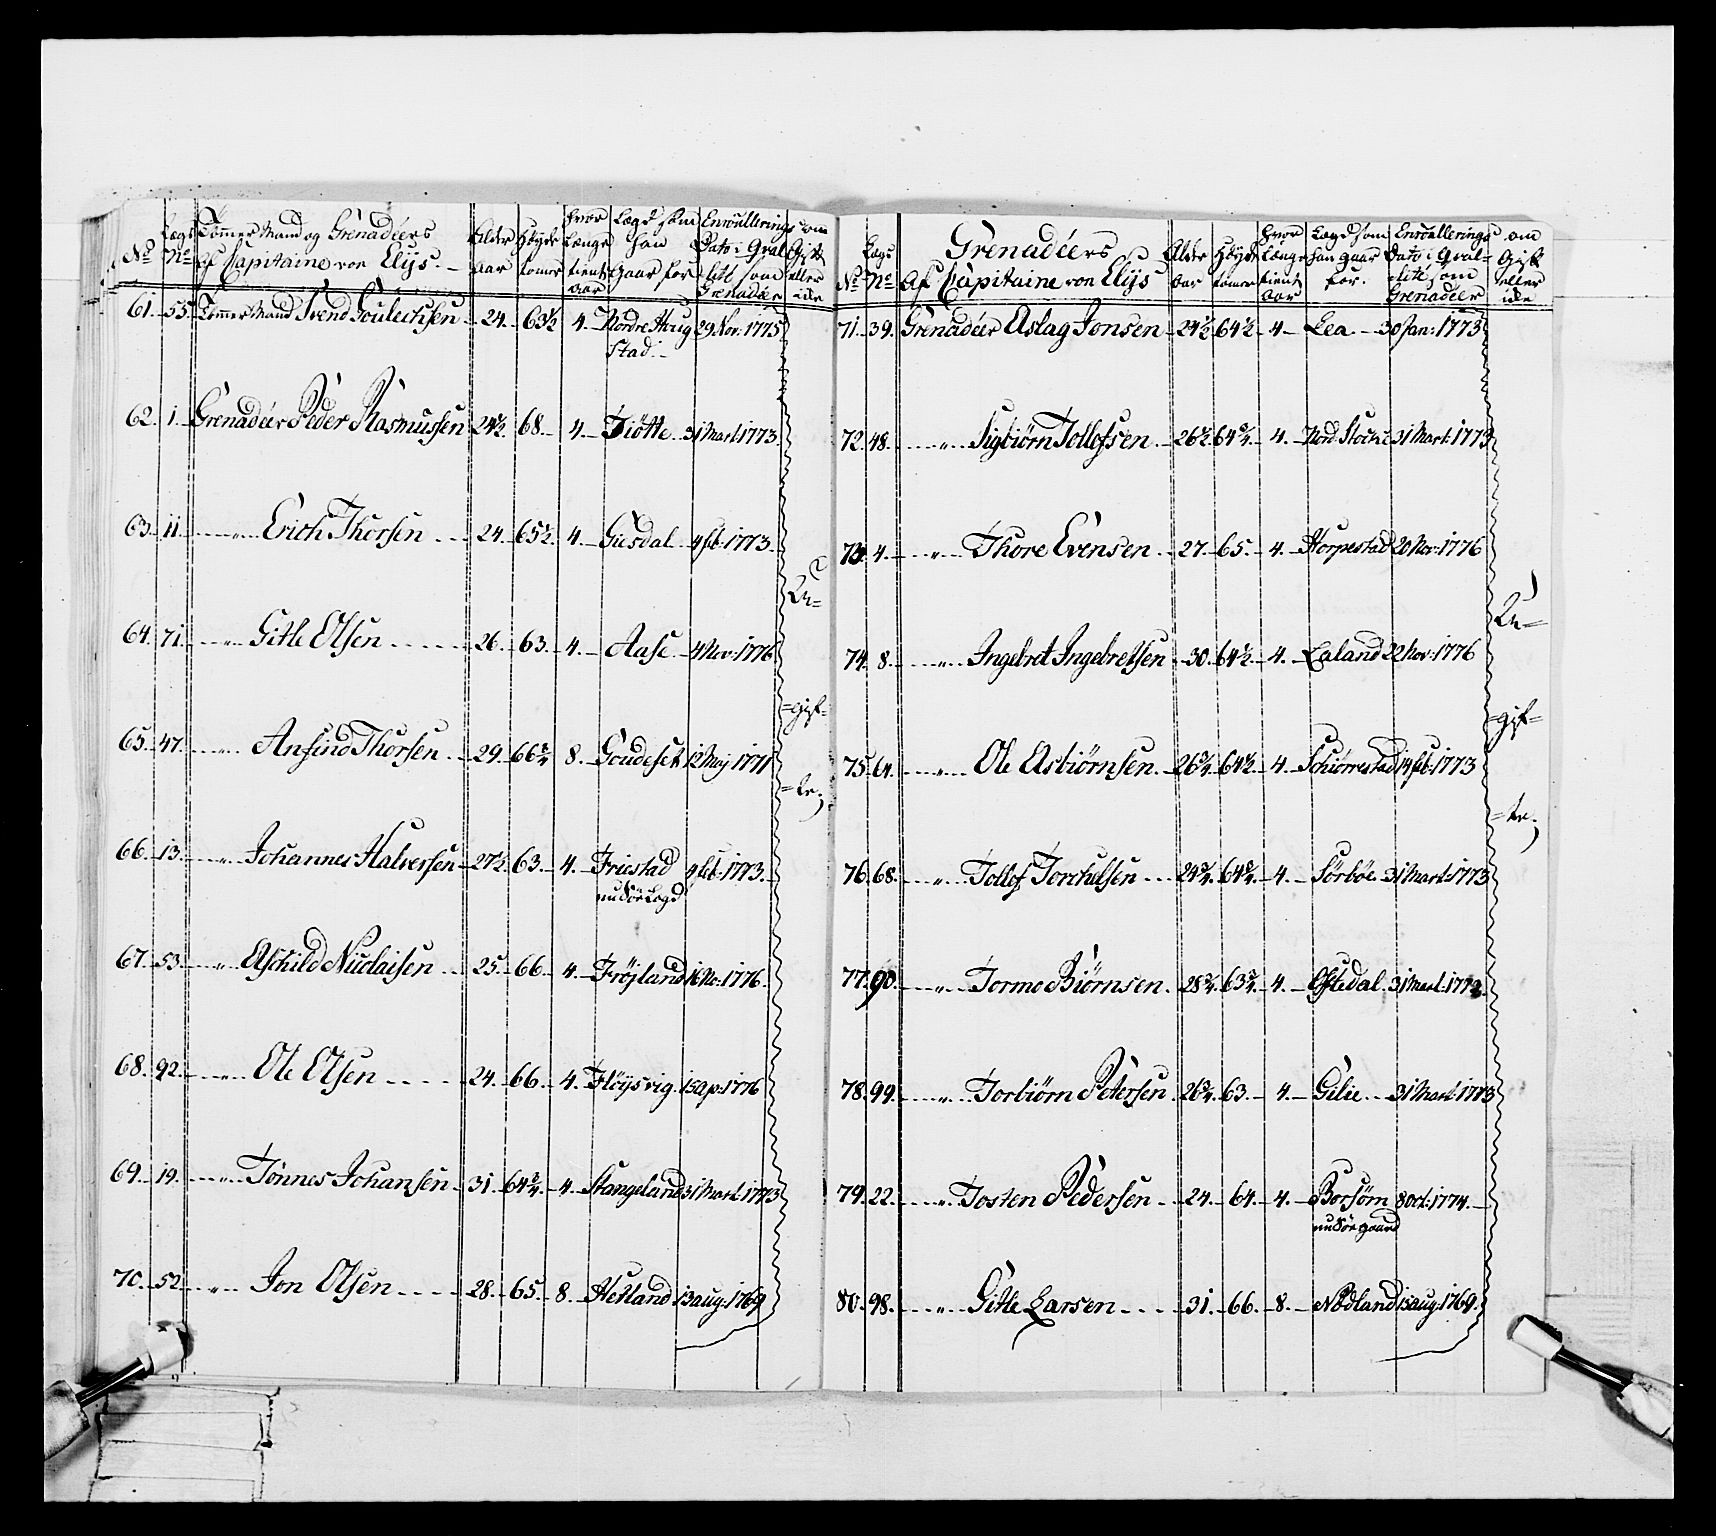 No Lægs No Tömmer Mand og Grenadéers af Capitaine von Elijs. Alder Aar Höyde tomer hvor Længe tient Aar Lægd som han Gaar for Enroullerings Dato i Qvalitè som Grenadeer om Gift eller ide
61. 55. Tömer Mand Svend Poulechsen 24. 63½ 4. Nordre Houg 29 Nov. 1775
Stad.
62. 1. Grenadéer Peder Rasmussen 24½ 68. 4. Tiötte 31 Mart. 1773
63. 11. " Erich Thorsen 24. 65½. 4. Giesdal 4 feb. 1773.
64. 71. " Gitle Olsen 26. 63. 4. Aase 4 Nov. 1776
65. 47. " Ansind Thorsen 29. 66¾ 8. Goudeset 12 Maj 1771
66. 13. " Johannes Halversen 27½ 63. 4. Friestad 4 feb. 1773.
nu Sör Logd
67. 53. " Aschild Nicolaisen 25. 66. 4. Fröjland 16 No. 1776.
68. 92. " Ole Olsen 24. 66. 4. Flöysvig 15 Ap. 1776
69. 19. " Tönnes Johansen 31. 64¾. 4. Stangeland 31 Mart. 1773
70. 52. " Jon Olsen 28. 65. 8. Hetland 13 aug. 1769
Lu=
=gif=
=te.
No Lægs No Grenadéers af Capitaine von Elijs Alder Aar Höyde tomer hvor Længe tient Aar Lægd som han gaar for. Enroullerings Dato i Qvalitè som Grenadeer om Gift eller ide
71. 39. Grenadéer Aslag Jonsen 24½ 64½ 4 Lea 30 Jan: 1773
72. 48. " Sigbiörn Tollefsen 26¾ 64¾. 4. Nord Stocke 31 Mart: 1773
73. 4. " Thore Evensen 27. 65. 4. Horpestad 20 Nov. 1776
74. 8. " Ingebret Ingebretsen 30. 64½. 4. Laland 22 Nov. 1776
75. 64. " Ole Asbiörnsen 26¾. 64½. 4. Schiörrestad 14 feb. 1773
76. 68. " Tollef Torchelsen 24¾. 64¾. 4. Sörböe 31 Mart. 1773
77. 90. " Tormo Biörnsen. 28¾. 63¾. 4. Ofstedal. 31 Mart. 1773
78. 99. " Torbiörn Petersen 26¾. 63. 4. Gilie 31 Mart. 1773
79. 22. " Tosten Pedersen 24. 64. 4. Borsörn 8 Oct. 1774.
nu Sör gaard
80. 98. " Gitle Larsen 31. 66. 8. Nödland 13 aug. 1769.
Lu=
=gif=
=te.